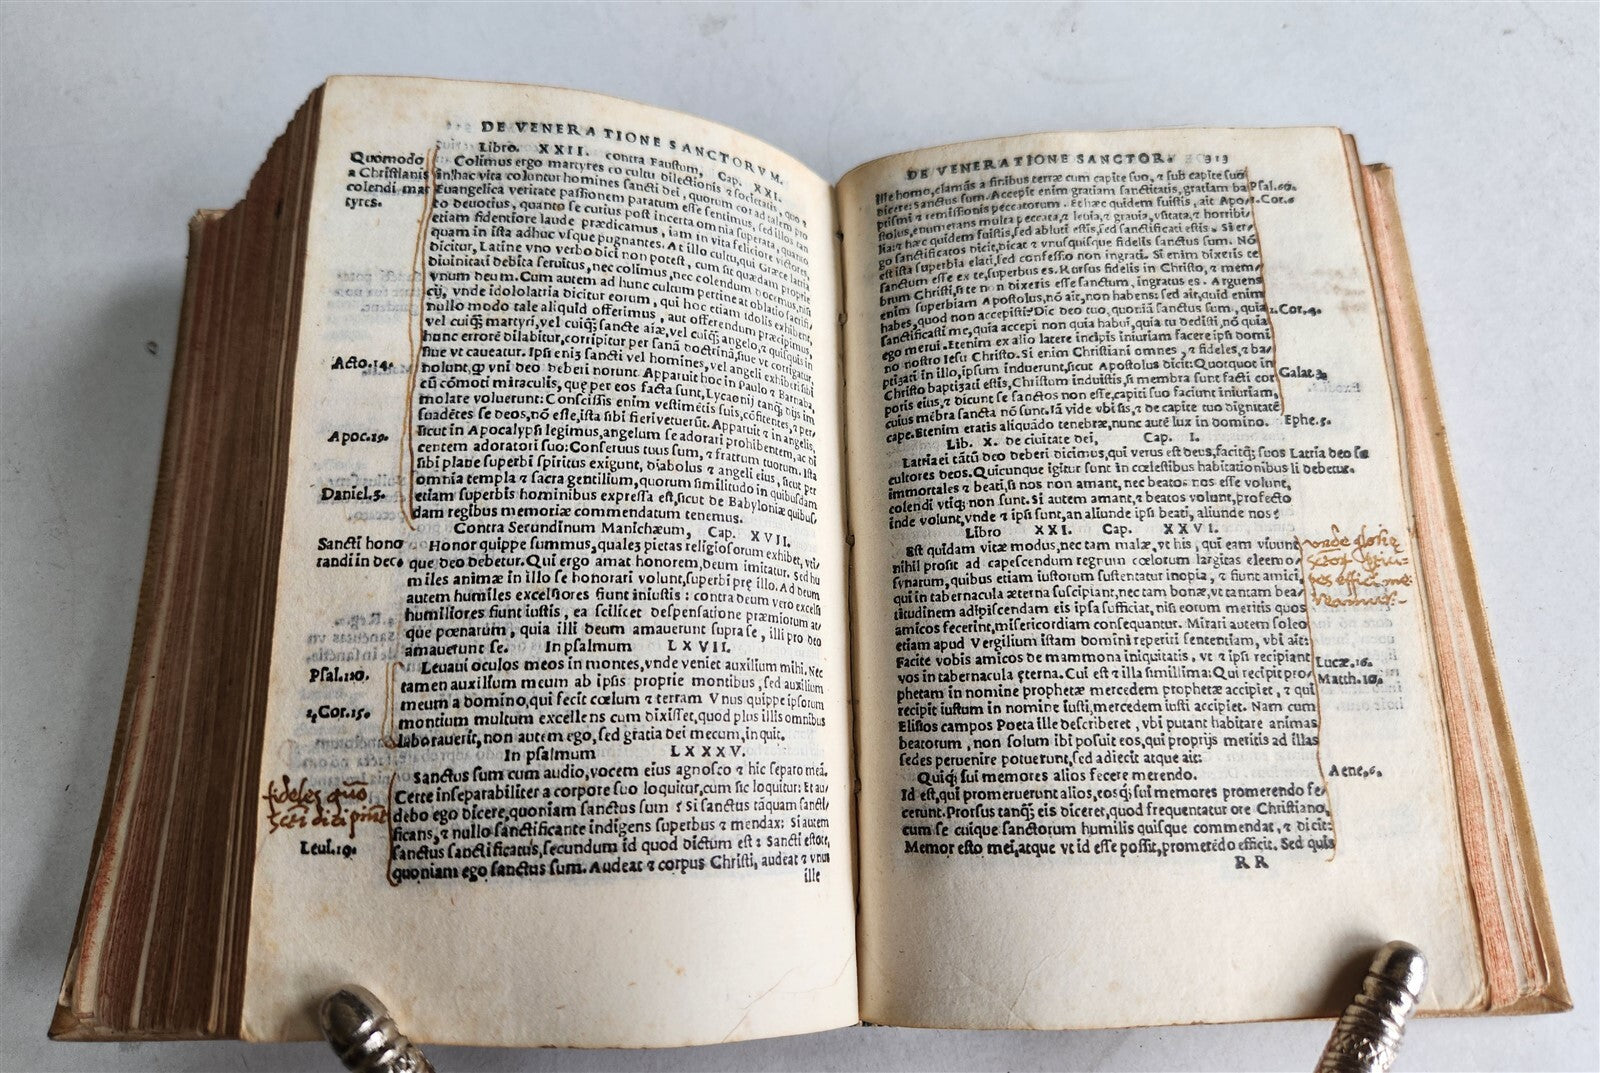 DE VENERATIONE SANCTORVM.
Libro. XXII. contra Faustum, Cap. XXI.
Quomodo
a Christianis
colendi mar
tyres.
Colimus ergo martyres eo cultu dilectionis ⁊ societatis, quo ⁊
in hac vita coluntur homines sancti dei, quorum cor ad talem pro
Euangelica veritate passionem paratum esse sentimus, sed illos tan
to deuotius, quanto securius post incerta omnia superata, quanto
etiam fidentiore laude prædicamus, iam in vita feliciore victores,
quam in ista adhuc vsque pugnantes. At illo cultu, qui Græce latria
dicitur, Latine vno verbo dici non potest, cum sit quædam proprie
diuinitati debita seruitus, nec colimus, nec colendum docemus, nisi
vnum deum. Cum autem ad hunc cultum pertineat oblatio sacrifi
cij, vnde idololatria dicitur eorum, qui hoc etiam idolis exhibent,
nullo modo tale aliquid offerimus, aut offerendum præcipimus,
vel cuiq; martyri, vel cuiq; sanctæ aiæ, vel cuiq; angelo, ⁊ quisquis in
hunc errorē dilabitur, corripitur per sanā doctrinā, siue vt corrigatur,
siue vt caueatur. Ipsi eniz sancti vel homines, vel angeli exhiberi sibi
Acto. 14.
nolunt, qp vni deo deberi norunt. Apparuit hoc in Paulo ⁊ Barnaba,
cū cōmoti miraculis, quę per eos facta sunt, Lycaonij tanq; dijs im
molare voluerunt: Conscissis enim vestimētis suis, cōfitentes, ⁊ per
suadētes se deos, nō esse, ista sibi fieri vetuerūt. Apparuit ⁊ in angelis,
Apoc. 19.
sicut in Apocalypsi legimus, angelum se adorari prohibentem, ac di
centem adoratori suo: Conseruus tuus sum, ⁊ fratrum tuorum. Ista
sibi plane superbi spiritus exigunt, diabolus ⁊ angeli eius, sicut per
omnia templa ⁊ sacra gentilium, quorum similitudo in quibusdam
Daniel. 3.
etiam superbis hominibus expressa est, sicut de Babyloniæ quibus,
dam regibus memoriæ commendatum tenemus.
Contra Secundinum Manichæum, Cap. XVII.
Sancti hono
randi in deo.
Honor quippe summus, qualez pietas religiosorum exhibet, vti⸗
que deo debetur. Qui ergo amat honorem, deum imitatur. Sed hu
miles animæ in illo se honorari volunt, superbi prę illo. Ad deum
autem humiles excelsiores fiunt iniustis: contra deum vero excelsi
humiliores fiunt iustis, ea scilicet despensatione præmiorum at⸗
que pœnarum, quia illi deum amauerunt supra se, illi pro deo
amauerunt se. In psalmum LXVII.
Leuaui oculos meos in montes, vnde veniet auxilium mihi. Nec
Psal. 120.
tamen auxilium meum ab ipsis proprie montibus, sed auxilium
meum a domino, qui fecit cœlum ⁊ terram Vnus quippe ipsorum
1. Cor. 15.
montium multum excellens cum dixisset, quod plus illis omnibus
laborauerit, non autem ego, sed gratia dei mecum, inquit.
In psalmum LXXXV.
Sanctus sum cum audio, vocem eius agnosco ⁊ hic separo meā.
fideles quō
scti dici pñt
Certe inseparabiliter a corpore suo loquitur, cum sic loquitur: Et au⸗
debo ego dicere, quoniam sanctus sum? Si sanctus tāquam sancti
ficans, ⁊ nullo sanctificante indigens superbus ⁊ mendax: Si autem
Leui. 19.
sanctus sanctificatus, secundum id quod dictum est: Sancti estote,
quoniam ego sanctus sum. Audeat ⁊ corpus Christi, audeat ⁊ vnus
ille
DE VENERATIONE SANCTOR. 313
ille homo, clamās a finibus terræ cum capite suo, ⁊ sub capite suo
Psal. 60.
dicere: Sanctus sum. Accepit enim gratiam sanctitatis, gratiam ba
ptismi ⁊ remissionis peccatorum. Et hæc quidem fuistis, ait Apo⸗
1. Cor. 6
stolus, enumerans multa peccata, ⁊ leuia, ⁊ grauia, vsitata, ⁊ horribi⸗
lia: ⁊ hæc quidem fuistis, sed abluti estis, sed sanctificati estis. Si er⸗
go sanctificatos dicit, dicat ⁊ vnusquisque fidelis sanctus sum. Nō
est ista superbia elati, sed confessio non ingrati. Si enim dixeris te
sanctum esse ex te, superbus es. Rursus fidelis in Christo, ⁊ mem⸗
brum Christi, si te non dixeris esse sanctum, ingratus es. Arguens
enim superbiam Apostolus, nō ait, non habens: sed ait, quid enim
habes, quod non accepisti? Dic deo tuo, quoniā sanctus sum, quia
1. Cor. 4.
sanctificasti me, quia accepi non quia habui, quia tu dedisti, nō quia
ego merui. Etenim ex alio latere incipis iniuriam facere ipsi domi
no nostro Iesu Christo. Si enim Christiani omnes, ⁊ fideles, ⁊ ba⸗
ptizati in illo, ipsum induerunt, sicut Apostolus dicit: Quotquot in
Galat. 3.
Christo baptizati estis, Christum induistis, si membra sunt facti cor
poris eius, ⁊ dicunt se sanctos non esse, capiti suo faciunt iniuriam,
cuius mēbra sancta nō sunt. Iā vide vbi sis, ⁊ de capite tuo dignitatē
Ephe. 5.
cape. Etenim eratis aliquādo tenebræ, nunc autē lux in domino.
Lib. X. de ciuitate dei, Cap. I.
Latriaei tātū deo deberi dicimus, qui verus est deus, facitq; suos
Latria deo so
cultores deos. Quicunque igitur sunt in cœlestibus habitationibus
li debetur.
immortales ⁊ beati, si nos non amant, nec beatos nos esse volunt,
colendi vtiq; non sunt. Si autem amant, ⁊ beatos volunt, profecto
inde volunt, vnde ⁊ ipsi sunt, an aliunde ipsi beati, aliunde nos?
Libro XXI. Cap. XXVI.
Est quidam vitæ modus, nec tam malæ, vt his, qui eam viuunt
nihil prosit ad capescendum regnum cœlorum largitas eleemo⸗
synarum, quibus etiam iustorum sustentatur inopia, ⁊ fiunt amici,
qui in tabernacula æterna suscipiant, nec tam bonæ, vt tantam bea⸗
titudinem adipiscendam eis ipsa sufficiat, nisi eorum meritis quos
amicos fecerint, misericordiam consequantur. Mirari autem soleo
etiam apud Vergilium istam domini reperiri sententiam, vbi ait:
Facite vobis amicos de mammona iniquitatis, vt ⁊ ipsi recipiant
Lucæ. 16.
vos in tabernacula ęterna. Cui est ⁊ illa simillima: Qui recipit pro⸗
Matth. 10.
phetam in nomine prophetæ mercedem prophetæ accipiet, ⁊ qui
recipit iustum in nomine iusti, mercedem iusti accipiet. Nam cum
Elisios campos Poeta ille describeret, vbi putant habitare animas
beatorum, non solum ibi posuit eos, qui proprijs meritis ad illas
sedes peruenire potuerunt, sed adiecit atque ait:
Quiq; sui memores alios fecere merendo.
Aene. 6.
Id est, qui promeruerunt alios, eosq; sui memores promerendo fe⸗
cerunt. Prorsus tanq; eis diceret, quod frequentatur ore Christiano,
cum se cuique sanctorum humilis quisque commendat, ⁊ dicit:
Memor esto mei, atque vt id esse possit, promerēdo efficit. Sed quis
RR